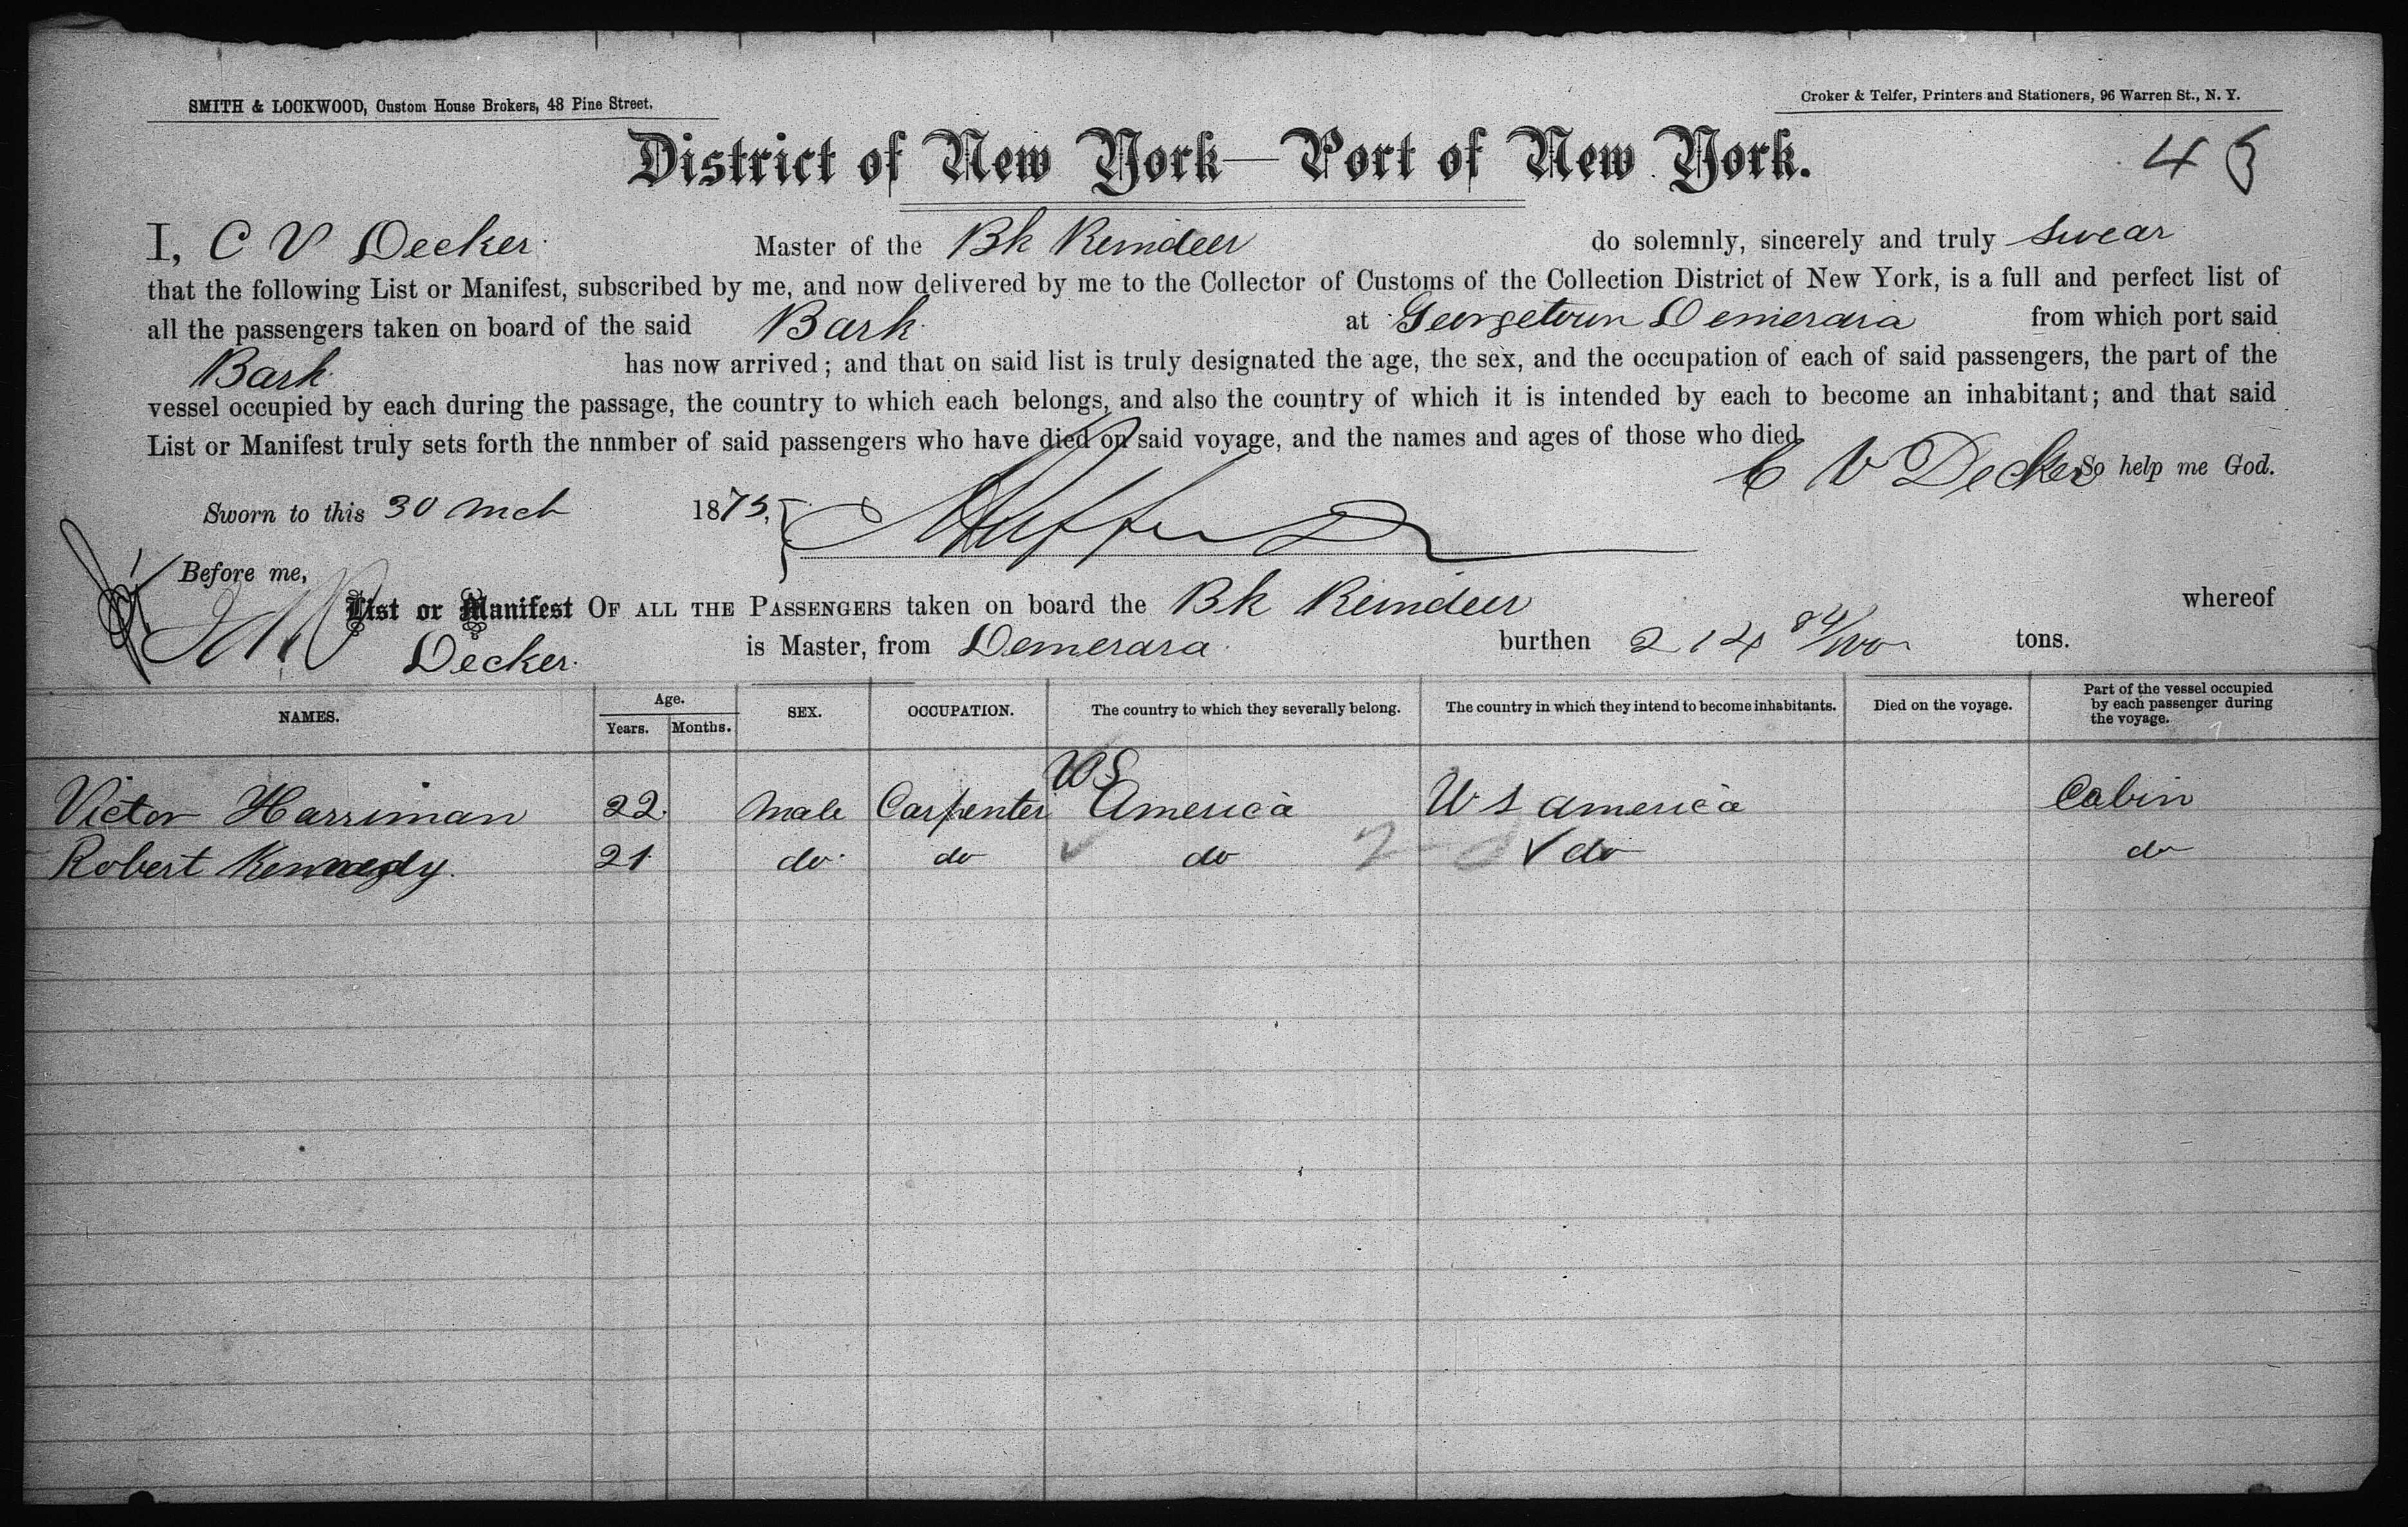 SMITH & LOCKWOOD, Custom House Brokers, 48 Pine Street.
Croker & Telfer, Printers and Stationers, 96 Warren St., N. Y.
District of New York—Port of New York.
I, C V Decker Master of the Bk Reindeer do solemnly, sincerely and truly swear
that the following List or Manifest, subscribed by me, and now delivered by me to the Collector of Customs of the Collection District of New York, is a full and perfect list of
all the passengers taken on board of the said Bark at Georgetown Demerara from which port said
Bark has now arrived; and that on said list is truly designated the age, the sex, and the occupation of each of said passengers, the part of the
vessel occupied by each during the passage, the country to which each belongs, and also the country of which it is intended by each to become an inhabitant; and that said
List or Manifest truly sets forth the nnmber of said passengers who have died on said voyage, and the names and ages of those who died.
C V Decker So help me God.
Sworn to this 30 Mch 1875,
Before me,
List or Manifest OF ALL THE PASSENGERS taken on board the Bk Reindeer whereof
Decker. is Master, from Demerara burthen 214 84/100 tons.
NAMES. Age. Years. Months. SEX. OCCUPATION. The country to which they severally belong. The country in which they intend to become inhabitants. Died on the voyage. Part of the vessel occupied by each passenger during the voyage.
Victor Harriman 22 male Carpenter US America U S america Cabin
Robert Kennedy. 21 do do do do do